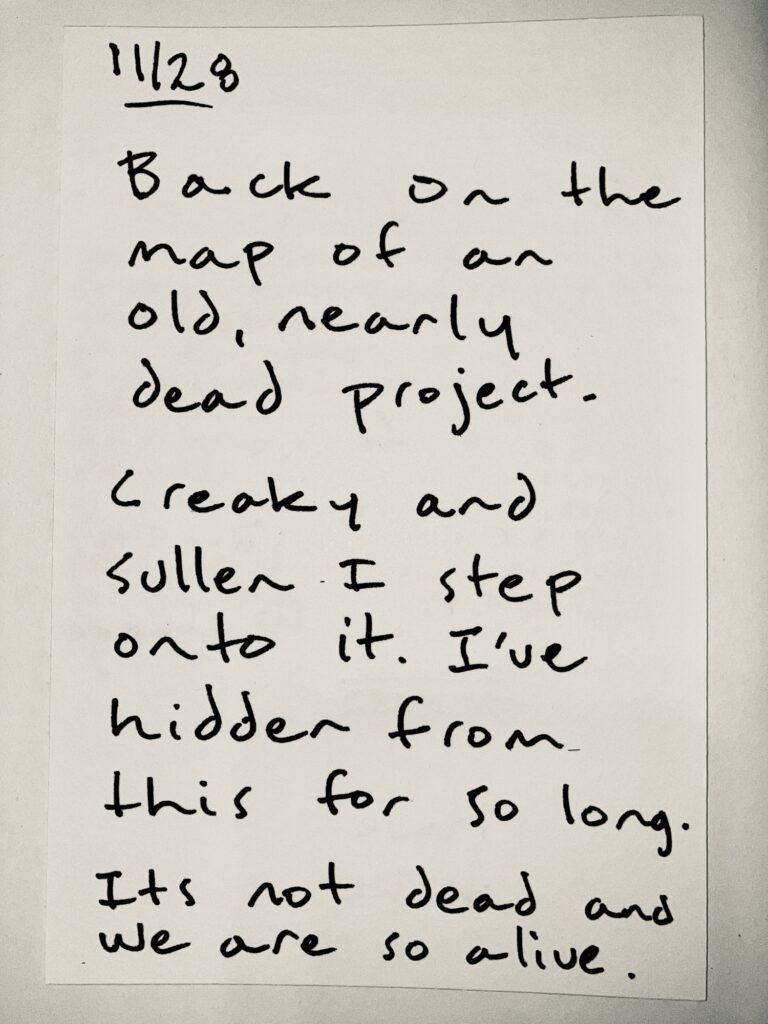 11/28
Back on the
map of an
old, nearly
dead project.
Creaky and
sullen I step
onto it. I've
hidden from
this for so long.
Its not dead and
we are so alive.